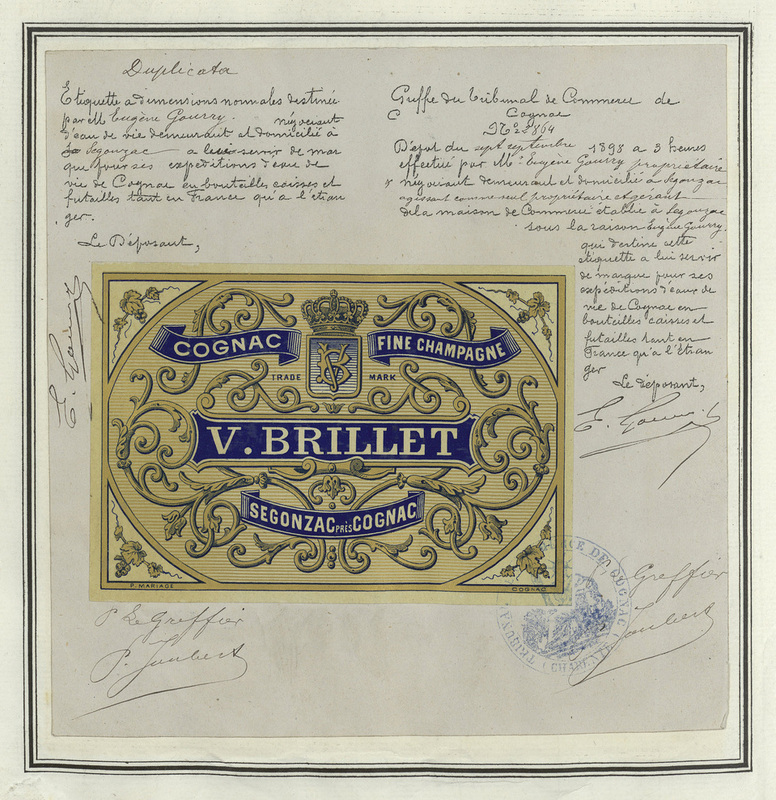 Duplicata
Etiquette a dimensions normales destinée
par Mr Eugène Gourry. négociant
d'eau de vie demeurant et domicilié à
Segonzac a lui servir de mar
que pour ses expéditions d'eau de
vie de Cognac en bouteilles caisses et
futailles tant en France qu'a l'étran
ger.
Le Déposant,
E. Gourry
Greffe du Tribunal de Commerce de
C Cognac
No 2864
Dépot du sept septembre 1898 a 3 heures
effectué par Mr Eugène Gourry propriétaire
négociant demeurant et domicilié à Segonzac
agissant comme seul propriétaire et gérant
de la maison de Commerce établie à Segonzac
sous la raison Eugène Gourry,
qui destine cette
etiquette a lui servir
de marque pour ses
expéditions d'eaux de
vie de Cognac en
bouteilles caisses et
futailles tant en
France qu'a l'étran
ger
Le déposant,
E. Gourry
COGNAC
FINE CHAMPAGNE
VB
TRADE MARK
V. BRILLET
SEGONZAC PRÈS COGNAC
P. MARIAGE
COGNAC
P Le Greffier
P. Joubert
Greffier
Joubert
TRIBUNAL DE COGNAC
(CHARENTE)